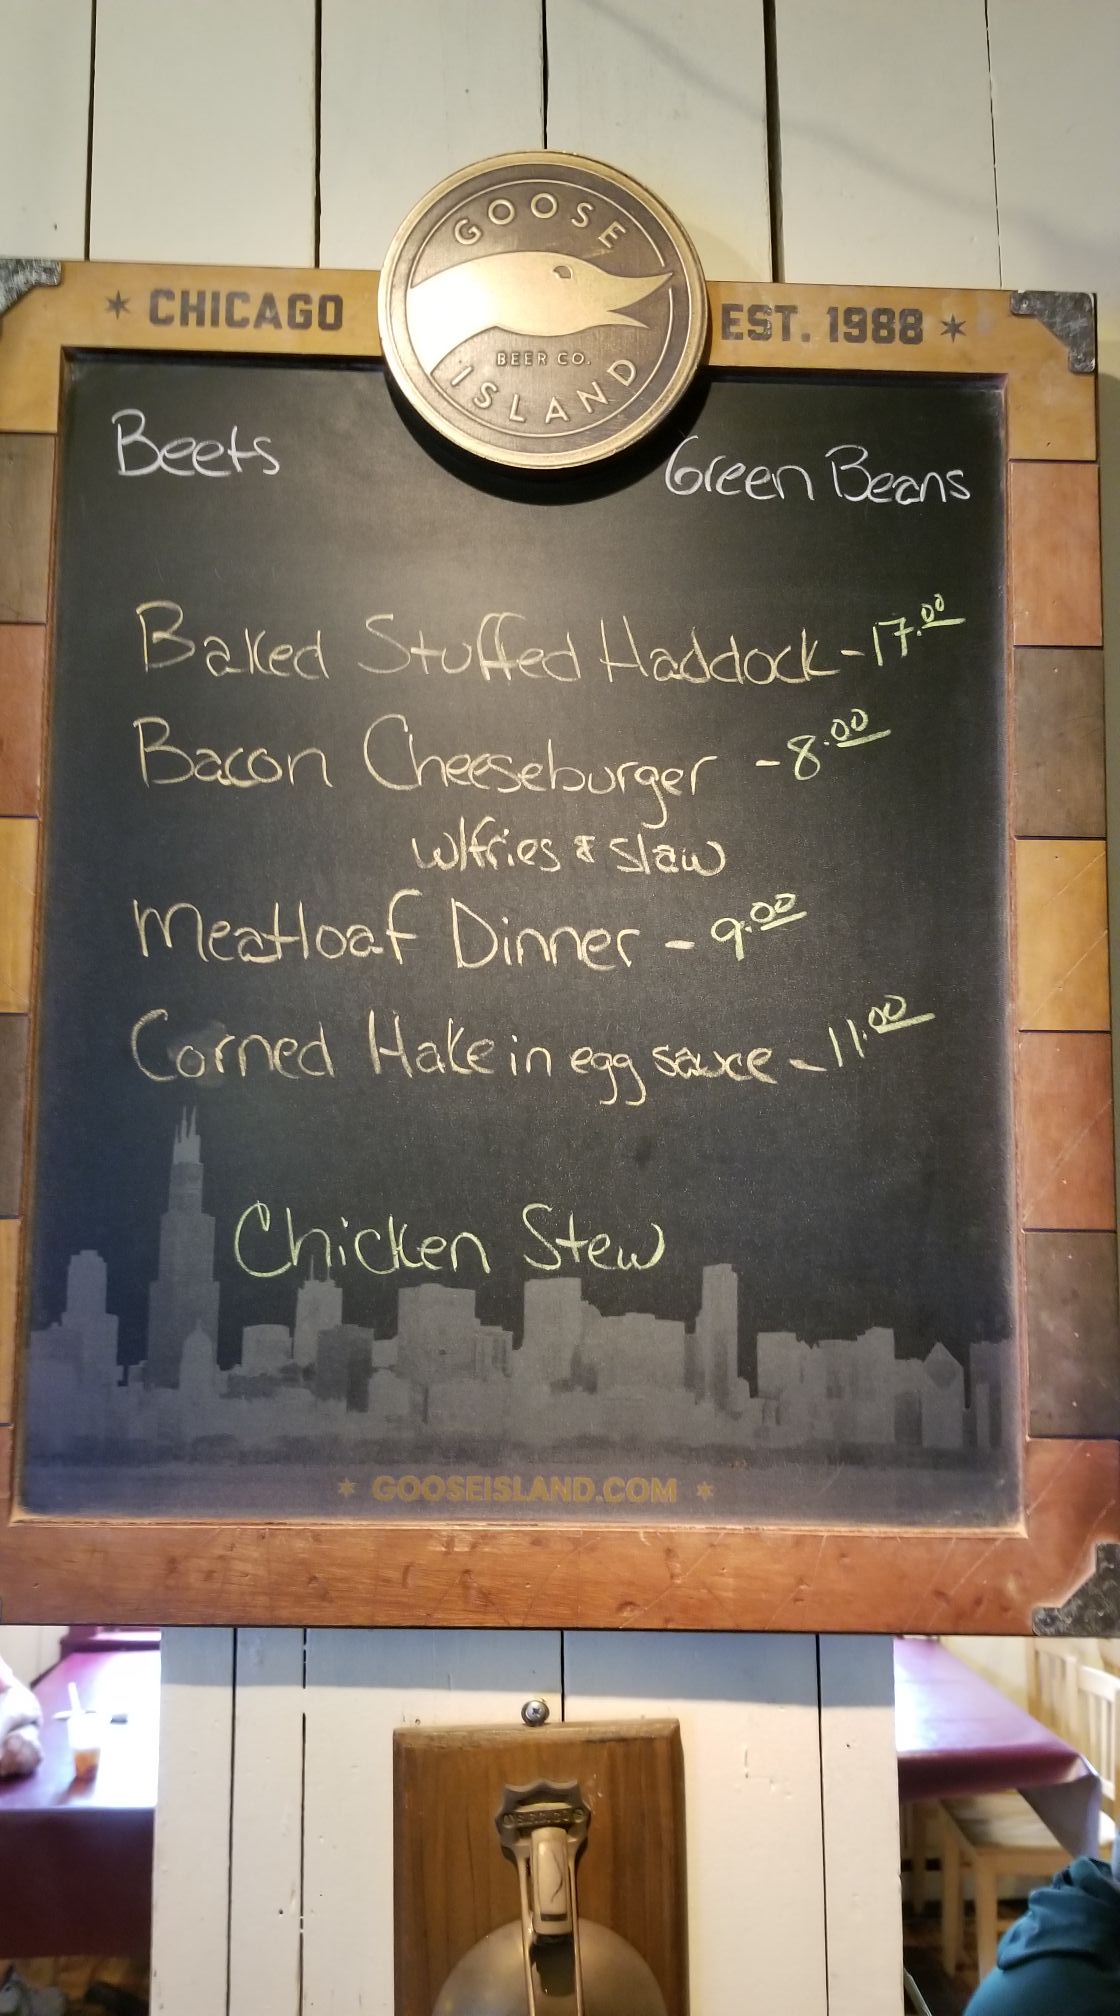 GOOSE
BEER CO.
ISLAND
✶ CHICAGO
EST. 1988 ✶
Beets
Green Beans
Baked Stuffed Haddock - 17.00
Bacon Cheeseburger - 8.00
w/fries & slaw
Meatloaf Dinner - 9.00
Corned Hake in egg sauce - 11.00
Chicken Stew
✶ GOOSEISLAND.COM ✶